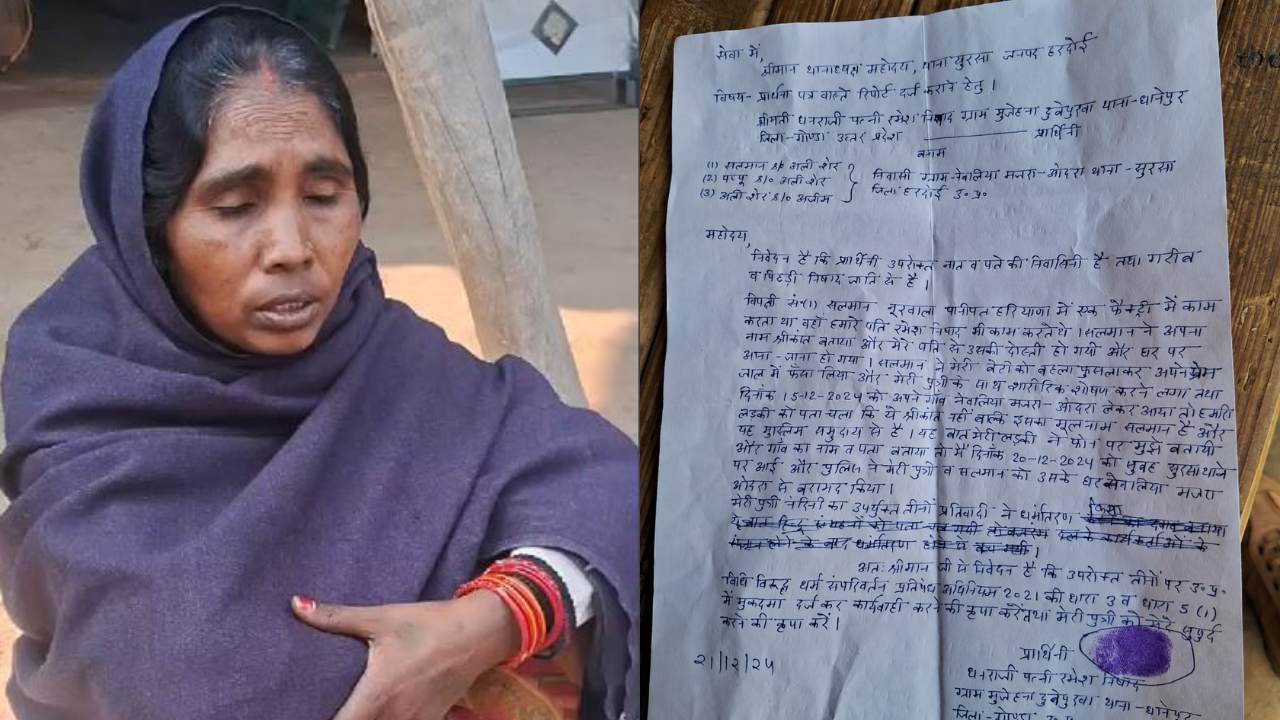 सेवा में,
श्रीमान थानाध्यक्ष महोदय, थाना सुरसा जनपद हरदोई
विषय- प्रार्थना पत्र वास्ते रिपोर्ट दर्ज कराने हेतु।
श्रीमती धनराजी पत्नी रमेश निषाद ग्राम मुजेहना दुबेपुरवा थाना-धानेपुर
जिला-गोण्डा उत्तर प्रदेश ——— प्रार्थिनी
बनाम
(1) सलमान s/o अली शेर
(2) पप्पू s/o अली शेर
(3) अली शेर s/o अजीम
निवासी ग्राम नेवलिया मजरा-ओदरा थाना-सुरसा
जिला हरदोई उ० प्र०
महोदय,
निवेदन है कि प्रार्थिनी उपरोक्त नाम व पते की निवासिनी है तथा गरीब
व पिछड़ी निषाद जाति से है।
विपक्षी सं०(1) सलमान नूरवाला पानीपत हरियाणा में एक फैक्ट्री में काम
करता था वहाँ हमारे पति रमेश निषाद भी काम करते थे। सलमान ने अपना
नाम श्रीकांत बताया और मेरे पति से उसकी दोस्ती हो गयी और घर पर
आना-जाना हो गया। सलमान ने मेरी बेटी को बहला फुसलाकर अपने प्रेम
जाल में फँसा लिया और मेरी पुत्री के साथ शारीरिक शोषण करने लगा तथा
दिनांक 15-12-2024 को अपने गाँव नेवलिया मजरा-ओदरा लेकर आया तो हमारी
लड़की को पता चला कि ये श्रीकांत नहीं बल्कि इसका मूलनाम सलमान है और
यह मुस्लिम समुदाय से है। यह बात मेरी लड़की ने फोन पर मुझे बतायी
और गाँव का नाम व पता बताया तो मैं दिनांक 20-12-2024 को सुबह सुरसा थाने
पर आई और पुलिस ने मेरी पुत्री व सलमान को उसके घर नेवलिया मजरा
ओदरा से बरामद किया।
मेरी पुत्री नंदिनी का उपर्युक्त तीनों प्रतिवादी ने धर्मांतरण किया
अतः श्रीमान जी से निवेदन है कि उपरोक्त तीनों पर उ० प्र०
विधि विरुद्ध धर्म संपरिवर्तन प्रतिषेध अधिनियम 2021 की धारा 3 व धारा 5 (1)
में मुकदमा दर्ज कर कार्यवाही करने की कृपा करें तथा मेरी पुत्री को मेरे सुपुर्द
करने की कृपा करें।
२१/१२/२५
प्रार्थिनी
धनराजी पत्नी रमेश निषाद
ग्राम मुजेहना दुबेपुरवा थाना-धानेपुर
जिला-गोण्डा उ० प्र०